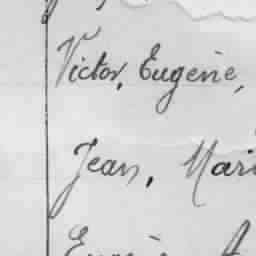 Victor, Eugène,
Jean, Mari